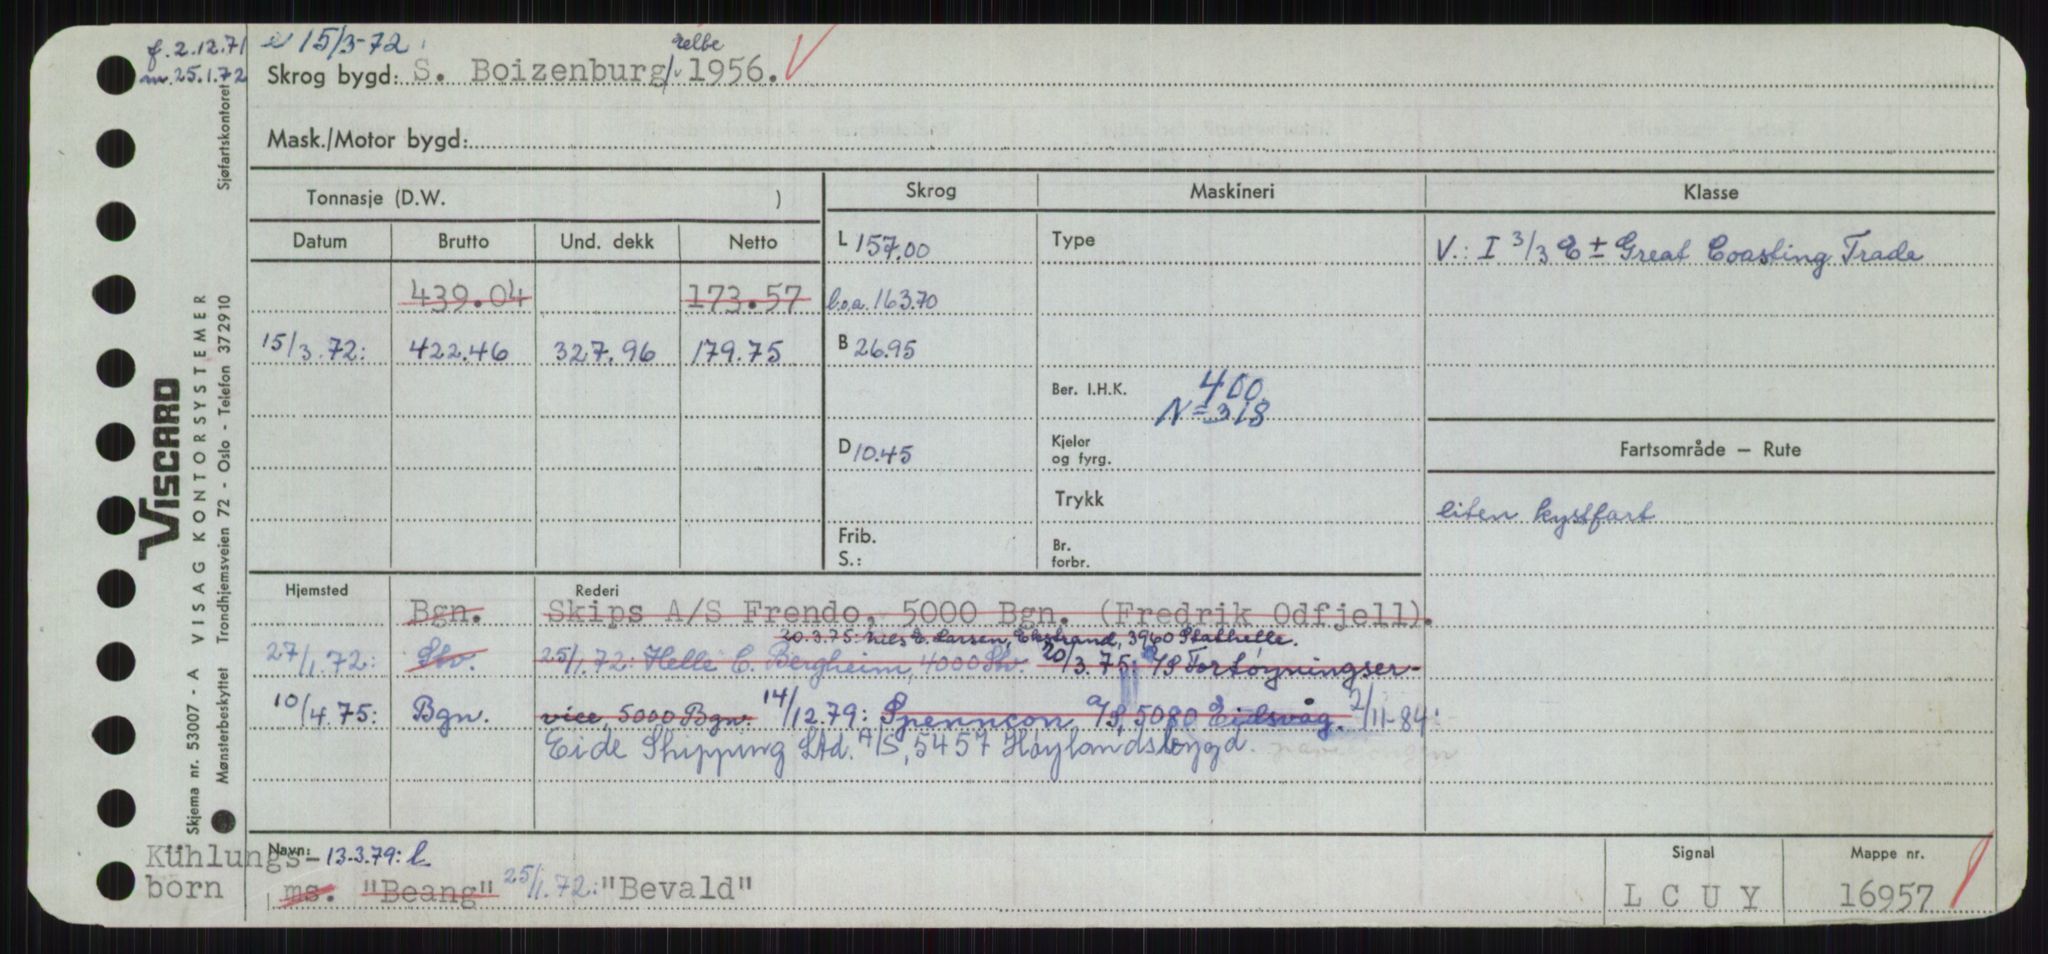 f. 2.12.71
m. 25.1.72
e 15/3-72.
Skrog bygd: S. Boizenburg/ 1956.
Mask./Motor bygd:
Tonnasje (D.W. )
Skrog
Maskineri
Klasse
Datum Brutto Und. dekk Netto
L 157.00
Type
V.: I 3/3 E ± Great Coasting Trade
439.04 173.57
l.o.a. 163.70
15/3.72: 422.46 327.96 179.75
B 26.95
Ber. I.H.K. 400.
N = 318
D 10.45
Kjeler
og fyrg.
Fartsområde — Rute
Trykk
liten kystfart
Frib.
S.:
Br.
forbr.
Hjemsted Rederi
Bgn. Skips A/S Frendo, 5000 Bgn. (Fredrik Odfjell).
20.3.75: Nils E. Larsen, Ekstrand, 3960 Stathelle.
27/1.72: Stv. 25/1.72: Helle C. Bergheim, 4000 Stv. 20/3.75: A/S Fortøyningser-
10/4.75: Bgn. vice, 5000 Bgn. 14/12.79: Spenncon A/S, 5080 Eidsvåg. 2/11-84:
Eide Shipping Ltd. A/S, 5457 Høylandsbygd.
Navn:
Kühlungs-
born
13.3.79: L
ms. "Beang" 25/1.72: "Bevald"
Signal
L C U Y
Mappe nr.
16957
Sjøfartskontoret
VISCARD
VISAG KONTORSYSTEMER
Trondhjemsveien 72 - Oslo - Telefon 37 29 10
Skjema nr. 53007 - A
Mønsterbeskyttet